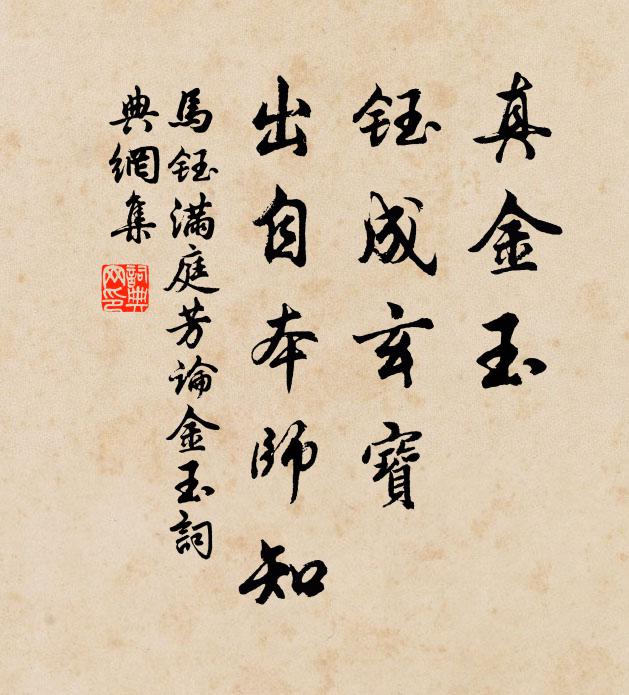 真金玉
鈺成玄寶
出自本師知
馬鈺滿庭芳論金玉詞
典網集
詞典網印